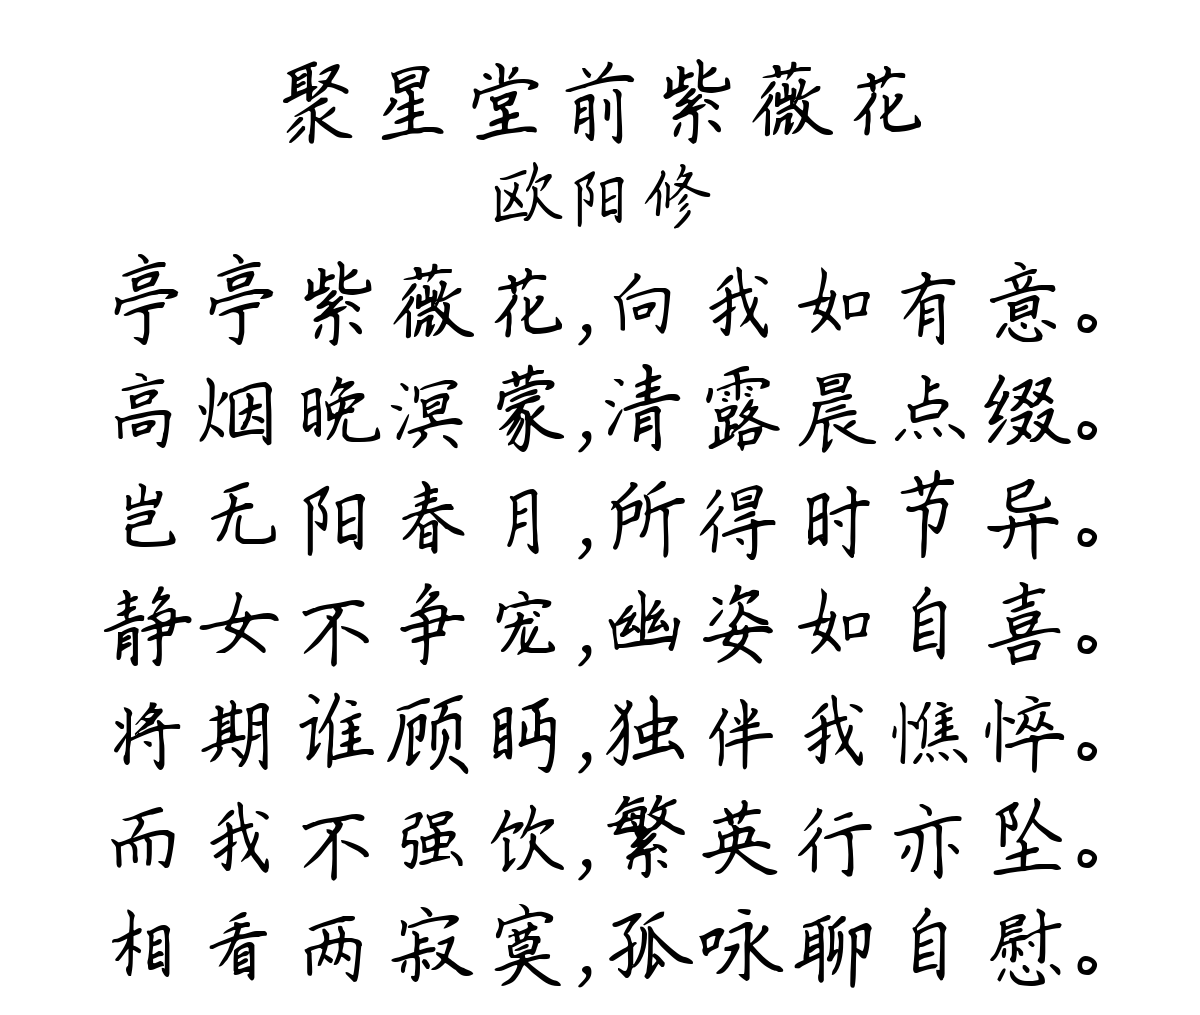 聚星堂前紫薇花
欧阳修
亭亭紫薇花,向我如有意。
高烟晚溟蒙,清露晨点缀。
岂无阳春月,所得时节异。
静女不争宠,幽姿如自喜。
将期谁顾眄,独伴我憔悴。
而我不强饮,繁英行亦坠。
相看两寂寞,孤咏聊自慰。